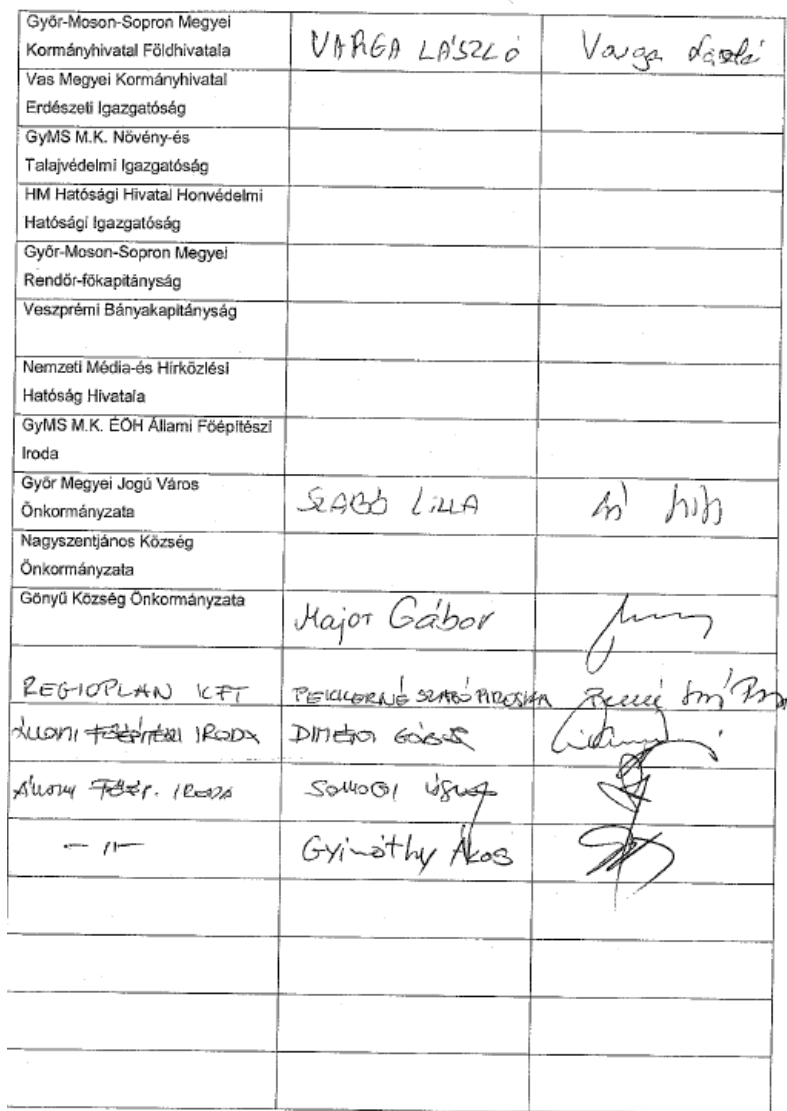 Győr-Moson-Sopron Megyei
Kormányhivatal Földhivatala
VARGA LÁSZLÓ
Varga László
Vas Megyei Kormányhivatal
Erdészeti Igazgatóság
GyMS M.K. Növény-és
Talajvédelmi Igazgatóság
HM Hatósági Hivatal Honvédelmi
Hatósági Igazgatóság
Győr-Moson-Sopron Megyei
Rendőr-főkapitányság
Veszprémi Bányakapitányság
Nemzeti Média-és Hírközlési
Hatóság Hivatala
GyMS M.K. ÉÖH Állami Főépítészi
Iroda
Győr Megyei Jogú Város
Önkormányzata
SZABÓ LILLA
Nagyszentjános Község
Önkormányzata
Gönyű Község Önkormányzata
Major Gábor
REGIOPLAN KFT
SZABÓ PIROSKA
ÁLLAMI FŐÉPÍTÉSZI IRODA
ÁLLAMI FŐÉP. IRODA
SOMOGYI
— 11 —
Gyimóthy Ákos